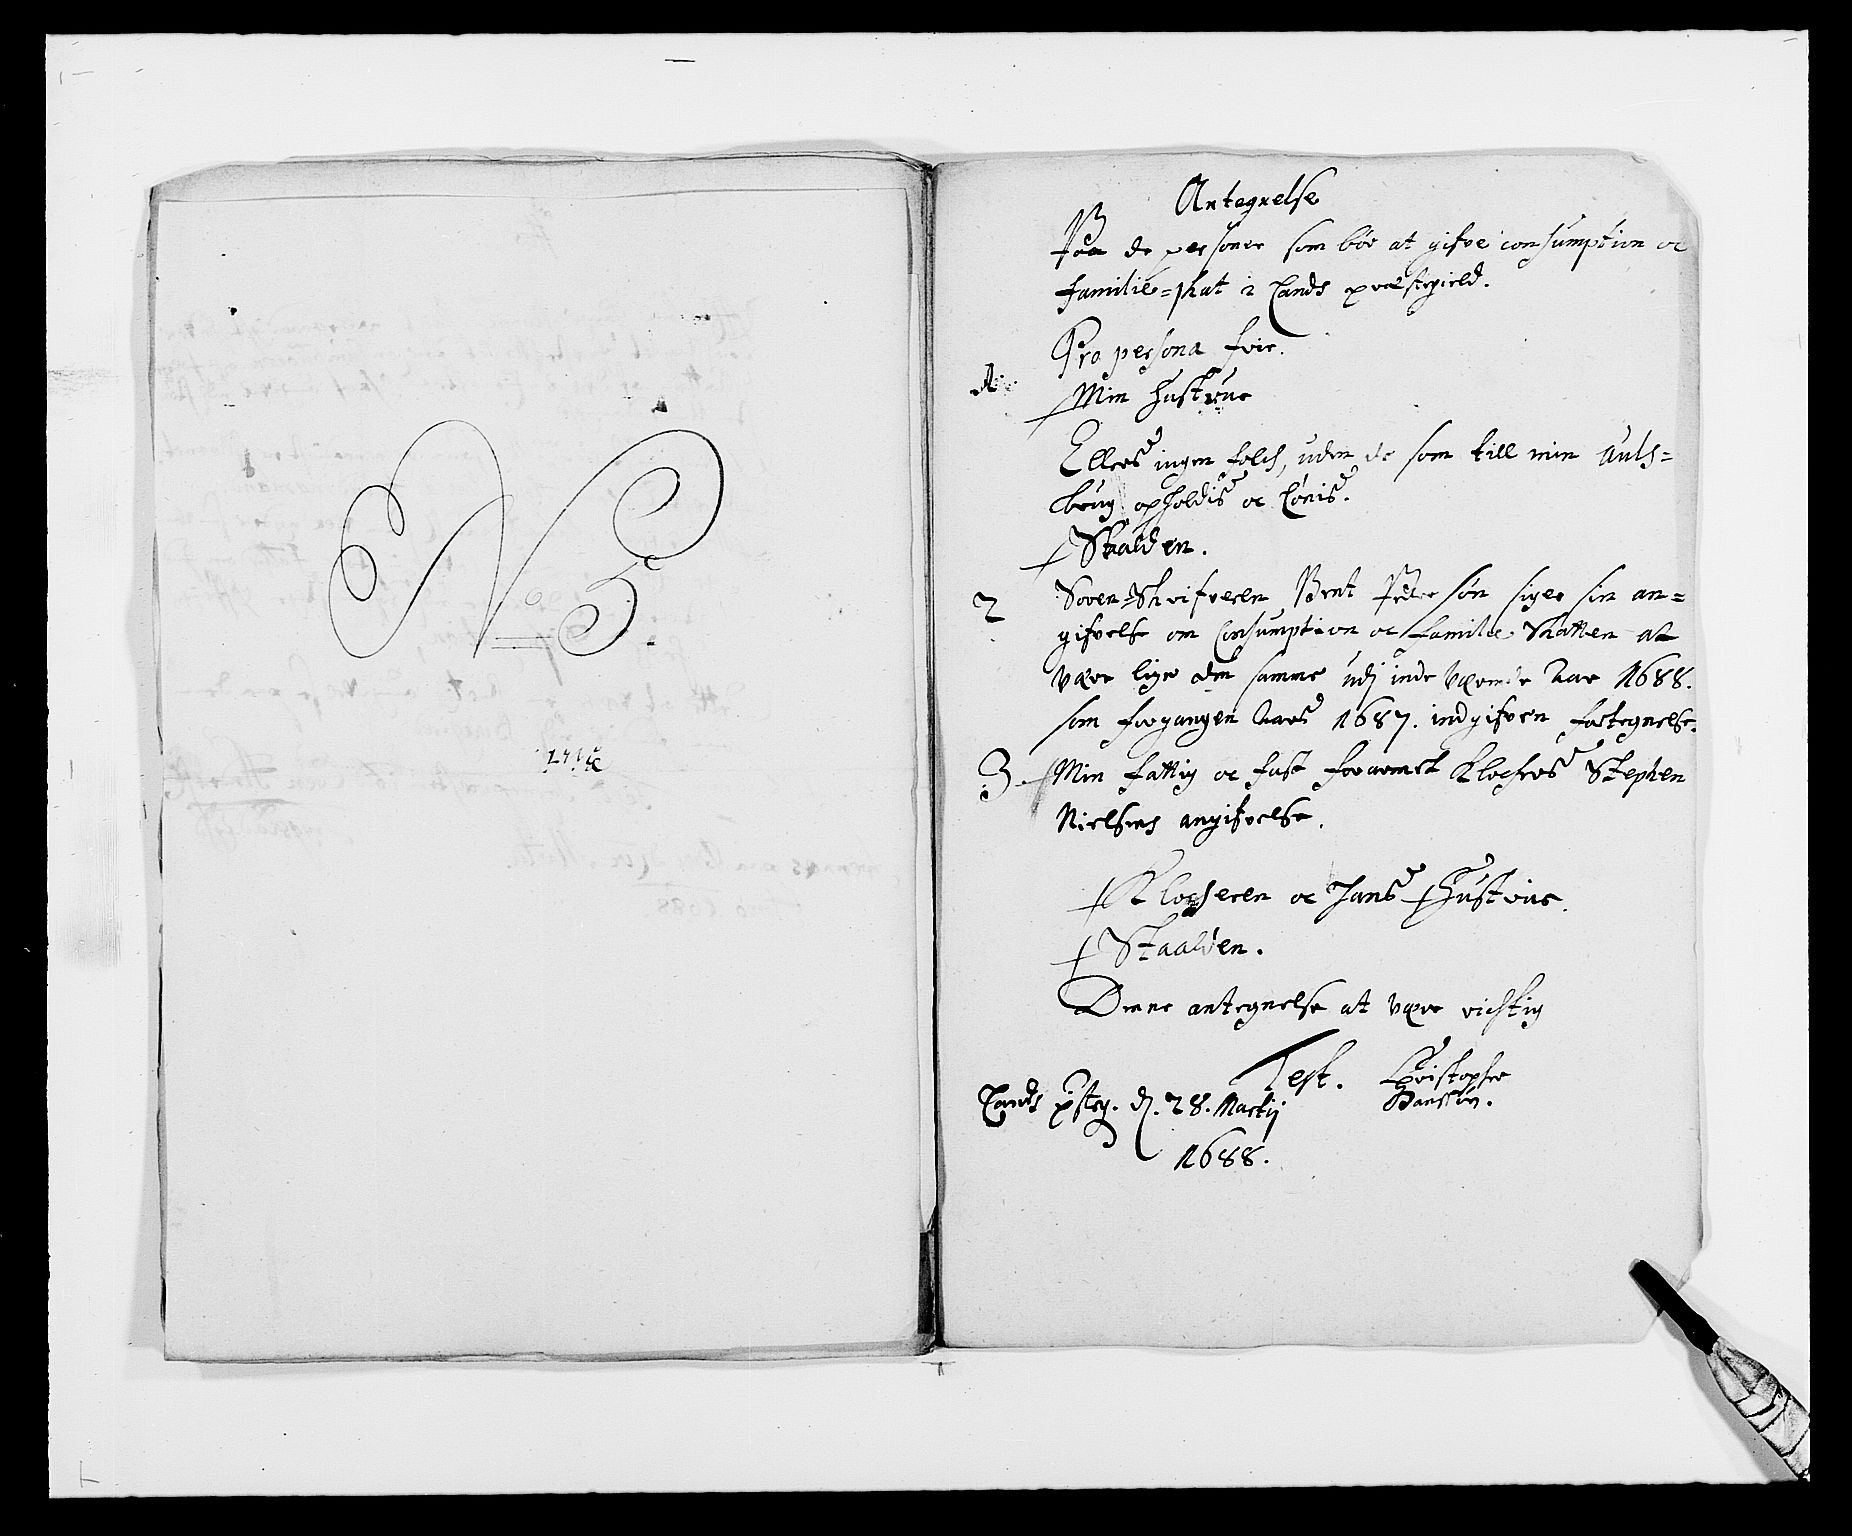 No 5.
Antegnelse
Paa de personer som bör at gifve consumption oc
familie=skat i Lands præstegield.
Pro persona frie.
Min Hustrue
Ellers ingen folch, uden de som till min auls=
brug opholdis oc lönis.
Staalden.
2 Soren=Skrifveren Bent Pedersøn siger sin an=
gifvelse om Consumption oc familie Skatten at
være lige den samme udj inde værende Aar 1688.
som forgangen Aars 1687. indgifven fortegnelse.
3. Min fattig oc fast forarmet Klochers Stephen
Nielsens angifvelse.
Klocheren oc hans Hustrue.
Staalden.
Denne antegnelse at være richtig
Test. Christopher
Hanssön.
Lands psteg. d. 28. Martij
1688.